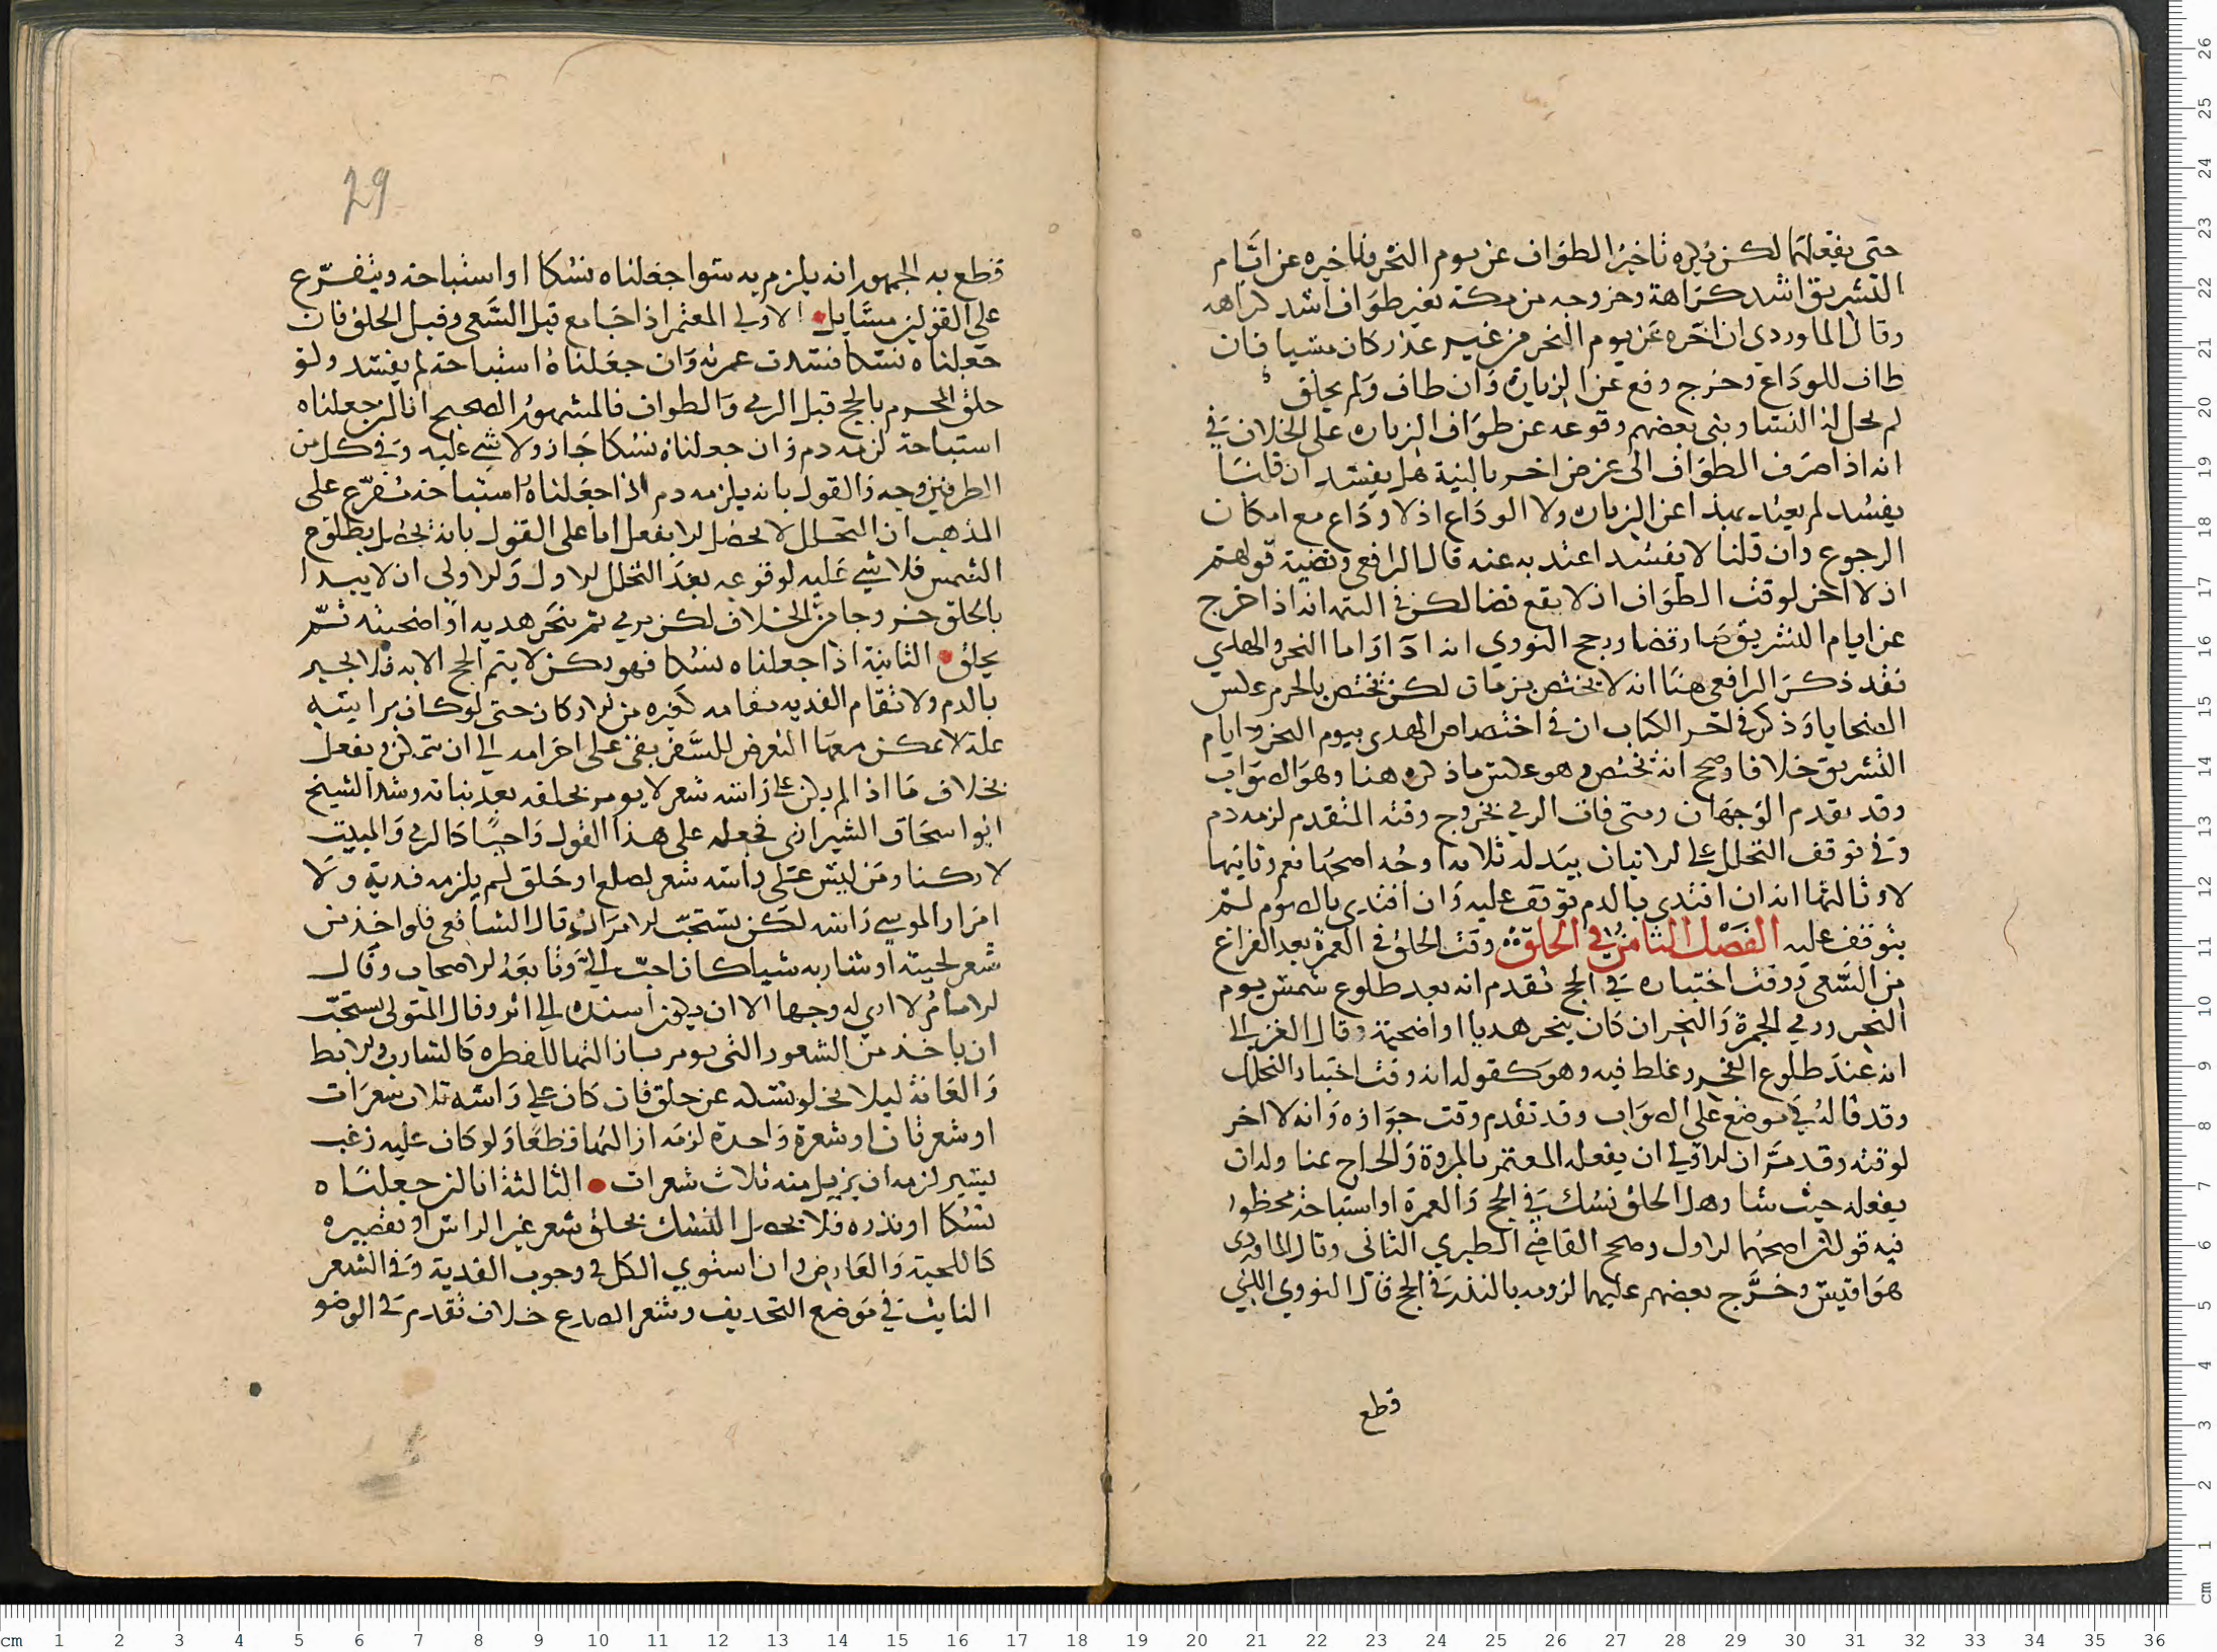 حتى يفعلها لكن يكره تاخير الطواف عن يوم النحر وتاخيره عن ايام
التشريق اشد كراهة وخروجه من مكة بغير طواف اشد كراهه
وقال الماوردي ان اخره عن يوم النحر من غير عذر كان مسيا فان
طاف للوداع وخرج وقع عن الزيارة وان طاف ولم يحلق
لم يحل له النسا وبنى بعضهم وقوعه عن طواف الزياره على الخلاف في
انه اذا صرف الطواف الى غرض اخر بالنية هل يفسد ان قلنا
يفسد لم يعتد بهذا عن الزياره ولا الوداع اذ لا وداع مع امكان
الرجوع وان قلنا لا يفسد اعتد به عنه قال الرافعي وقضية قولهم
ان لا اخر لوقت الطواف ان لا يقع قضا لكن في التتمه انه اذا اخرج
عن ايام التشريق صار قضا ورجح النووي انه اداواما النحر والهدي
فقد ذكر الرافعي هنا انه لا يختص بزمان لكن يختص بالحرم عكس
الضحايا وذكر في اخر الكتاب ان في اختصاص الهدي بيوم النحر وايام
التشريق خلافا وصحح انه يختص وهو عكس ما ذكره هنا وهو الصواب
وقد تقدم الوجهان ومتى فات الرمي بخروج وقته المتقدم لزمه دم
وفي توقف التحلل على الاتيان ببدله ثلاثه اوجه اصحها نعم وثانيها
لا وثالثها انه ان افتدى بالدم توقف عليه وان افتدى بالصوم لم
يتوقف عليه الفصل الثامن في الحلق وقت الحلق في العمرة بعد الفراغ
من السعي ووقت اختياره في الحج تقدم انه بعد طلوع شمس يوم
النحر ورمي الجمرة والنحر ان كان ينحر هديا او اضحية وقال الغزالي
انه عند طلوع الفجر وغلط فيه وهو كقوله انه وقت اختيار التحلل
وقد قاله في موضع على الصواب وقد تقدم وقت جوازه وانه لا اخر
لوقته وقد مر ان الاولى ان يفعله المعتمر بالمروة والحاج بمنا وله ان
يفعله حيث شا وهل الحلق نسك في الحج والعمرة او استباحة محظور
فيه قولان اصحهما الاول وصحح القاضي الطبري الثاني وقال الماوردى
هو اقيس وخرج بعضهم عليهما لزومه بالنذر في الحج قال النووي الذي
قطع
29
قطع به الجمهور انه يلزم به سوا جعلناه نسكا او استباحة ويتفرع
على القولين مسايل الاولى المعتمر اذا جامع قبل السعي وقبل الحلق فان
جعلناه نسكا فسدت عمرته وان جعلناه استباحة لم يفسد ولو
حلق المحرم بالحج قبل الرمي والطواف فالمشهور الصحيح انا ان جعلناه
استباحة لزمه دم وان جعلناه نسكا جاز ولا شي عليه وفي كل من
الطرفين وجه والقول بانه يلزمه دم اذا جعلناه استباحة تفرع على
المذهب ان التحلل لا يحصل الا بفعل اما على القول بانه يحصل بطلوع
الشمس فلا شي عليه لوقوعه بعد التحلل الاول والاولى ان لا يبدا
بالحلق خروجا من الخلاف لكن يرمي ثم ينحر هديه او اضحيته ثم
يحلق الثانية اذا جعلناه نسكا فهو ركن لا يتم الحج الا به فلا يجبر
بالدم ولا تقام الفديه مقامه كغيره من الاركان حتى لو كان براسه
علة لا يمكن معها التعرض للشعر بقي على احرامه الى ان يتمكن ويفعل
بخلاف ما اذا لم يكن على راسه شعر لا يومر بحلقه بعد نباته وشذ الشيخ
ابو اسحاق الشيرازي فجعله على هذا القول واجبا كالرمي والمبيت
لا ركنا ومن ليس على راسه شعر لصلع او حلق لم يلزمه فدية ولا
امرار الموسي راسه لكن يستحب الامرار قال الشافعي فلو اخذ من
شعر لحيته او شاربه شيا كان احب الي وتابعه الاصحاب وقال
الامام لا ارى له وجها الا ان يكون اسنده الى اثر وقال المتولي يستحب
ان ياخذ من الشعور التي يومر بازالتها للفطره كالشارب والابط
والعانة ليلا يخلو نسكه عن حلق فان كان على راسه ثلاث شعرات
او شعرتان او شعرة واحدة لزمه ازالتها قطعا ولو كان عليه زغب
يسير لزمه ان يزيل منه ثلاث شعرات الثالثة انا ان جعلناه
نسكا او نذره فلا يحصل النسك بحلق شعر غير الراس او تقصيره
كاللحية والعارض وان استوى الكل في وجوب الفدية وفي الشعر
النابت في موضع التحذيف وشعر الصدغ خلاف تقدم في الوضو